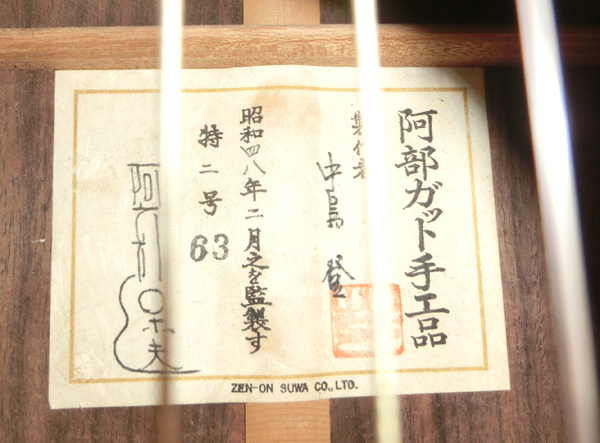 阿部ガット手工品
製作者
中島 登
昭和四八年二月之を監製す
特二号
63
ZEN-ON SUWA CO., LTD.